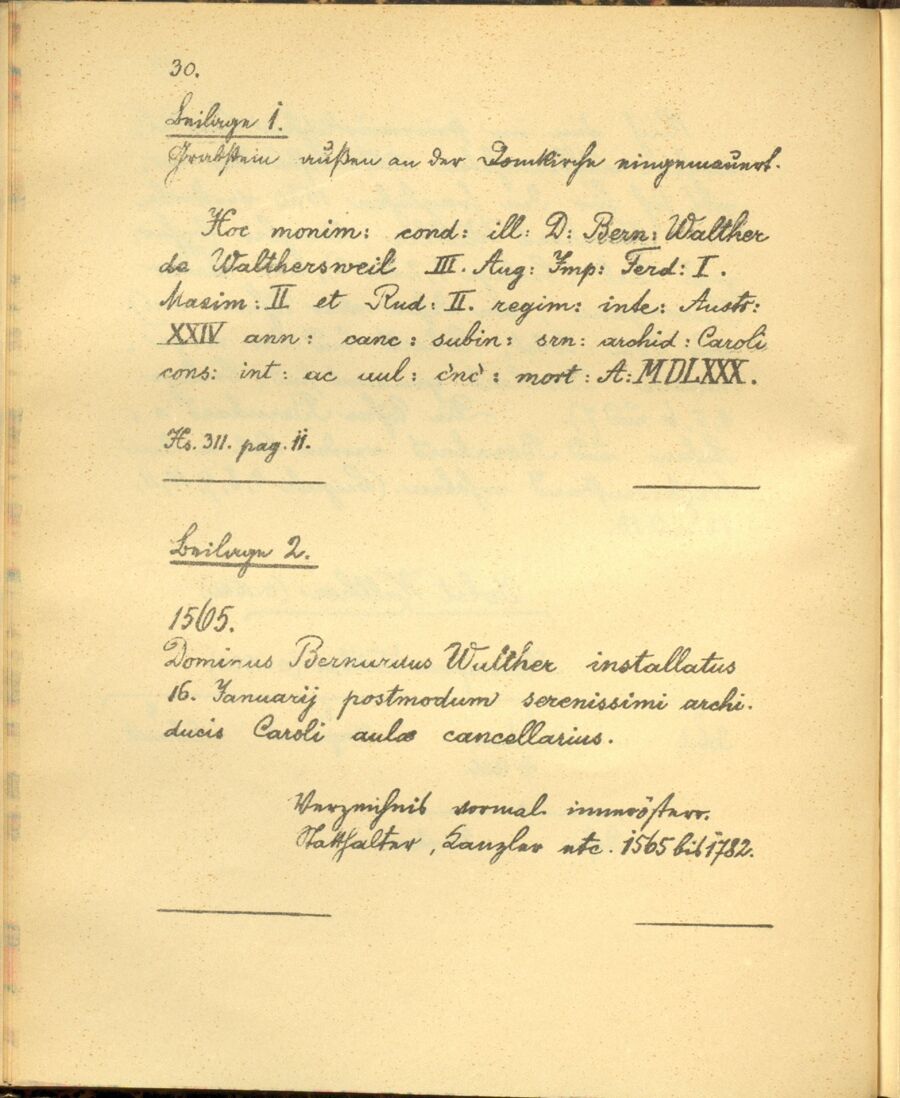 30.
Beilage 1.
Grabstein außen an der Domkirche eingemauert.
Hoc monim: cond: ill: D: Bern: Walther
de Walthersweil III. Aug: Imp: Ferd: I.
Maxim: II et Rud: II. regim: inte: Austr:
XXIV ann: canc: subin: srn: archid: Caroli
cons: int: ac aul: cnc: mort: A: MDLXXX.
Hs. 311. pag. 11.
Beilage 2.
1565.
Dominus Bernardus Walther installatus
16. Januarij postmodum serenissimi archi.
ducis Caroli aulae cancellarius.
Verzeichnis vormal. innerösterr.
Statthalter, Kanzler etc. 1565 bis 1782.